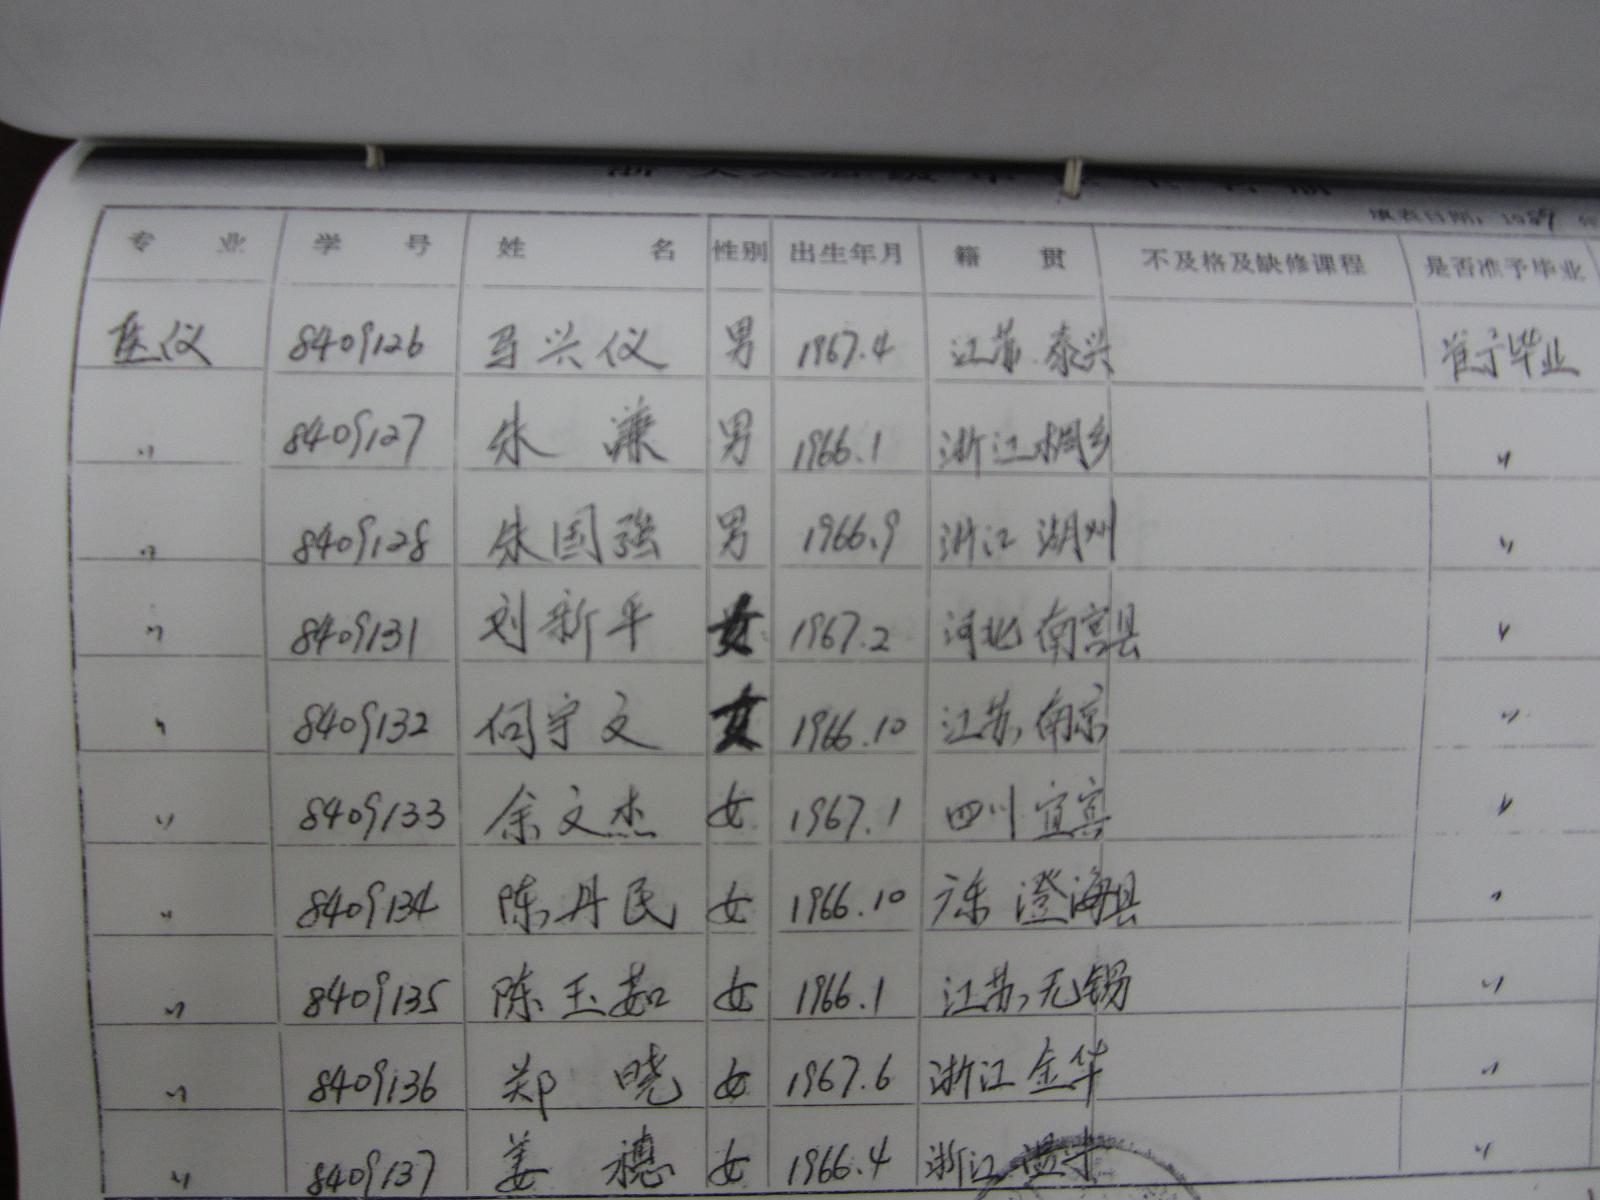 填表日期：1989 年
专 业 学 号 姓 名 性别 出生年月 籍 贯 不及格及缺修课程 是否准予毕业
医仪 8409126 马兴仪 男 1967.4 江苏 泰兴 准予毕业
〃 8409127 朱 濂 男 1966.1 浙江 桐乡 〃
〃 8409128 朱国强 男 1966.9 浙江 湖州 〃
〃 8409131 刘新平 女 1967.2 河北 南宫县 〃
〃 8409132 何宇文 女 1966.10 江苏 南京 〃
〃 8409133 余文杰 女 1967.1 四川 宜宾 〃
〃 8409134 陈丹民 女 1966.10 广东 澄海县 〃
〃 8409135 陈玉茹 女 1966.1 江苏 无锡 〃
〃 8409136 郑 晓 女 1967.6 浙江 金华 〃
〃 8409137 姜 穗 女 1966.4 浙江 〃